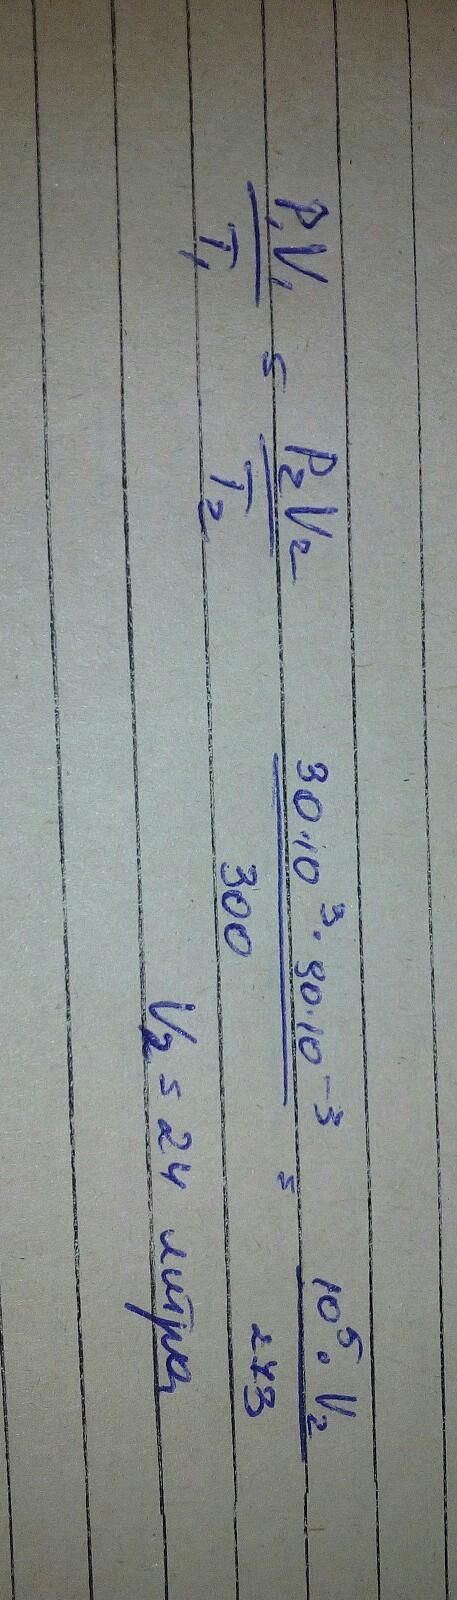 P₁V₁/T₁ = P₂V₂/T₂   30·10³·90·10⁻³/300 = 10⁵·V₂/273
V₂ = 24 литра